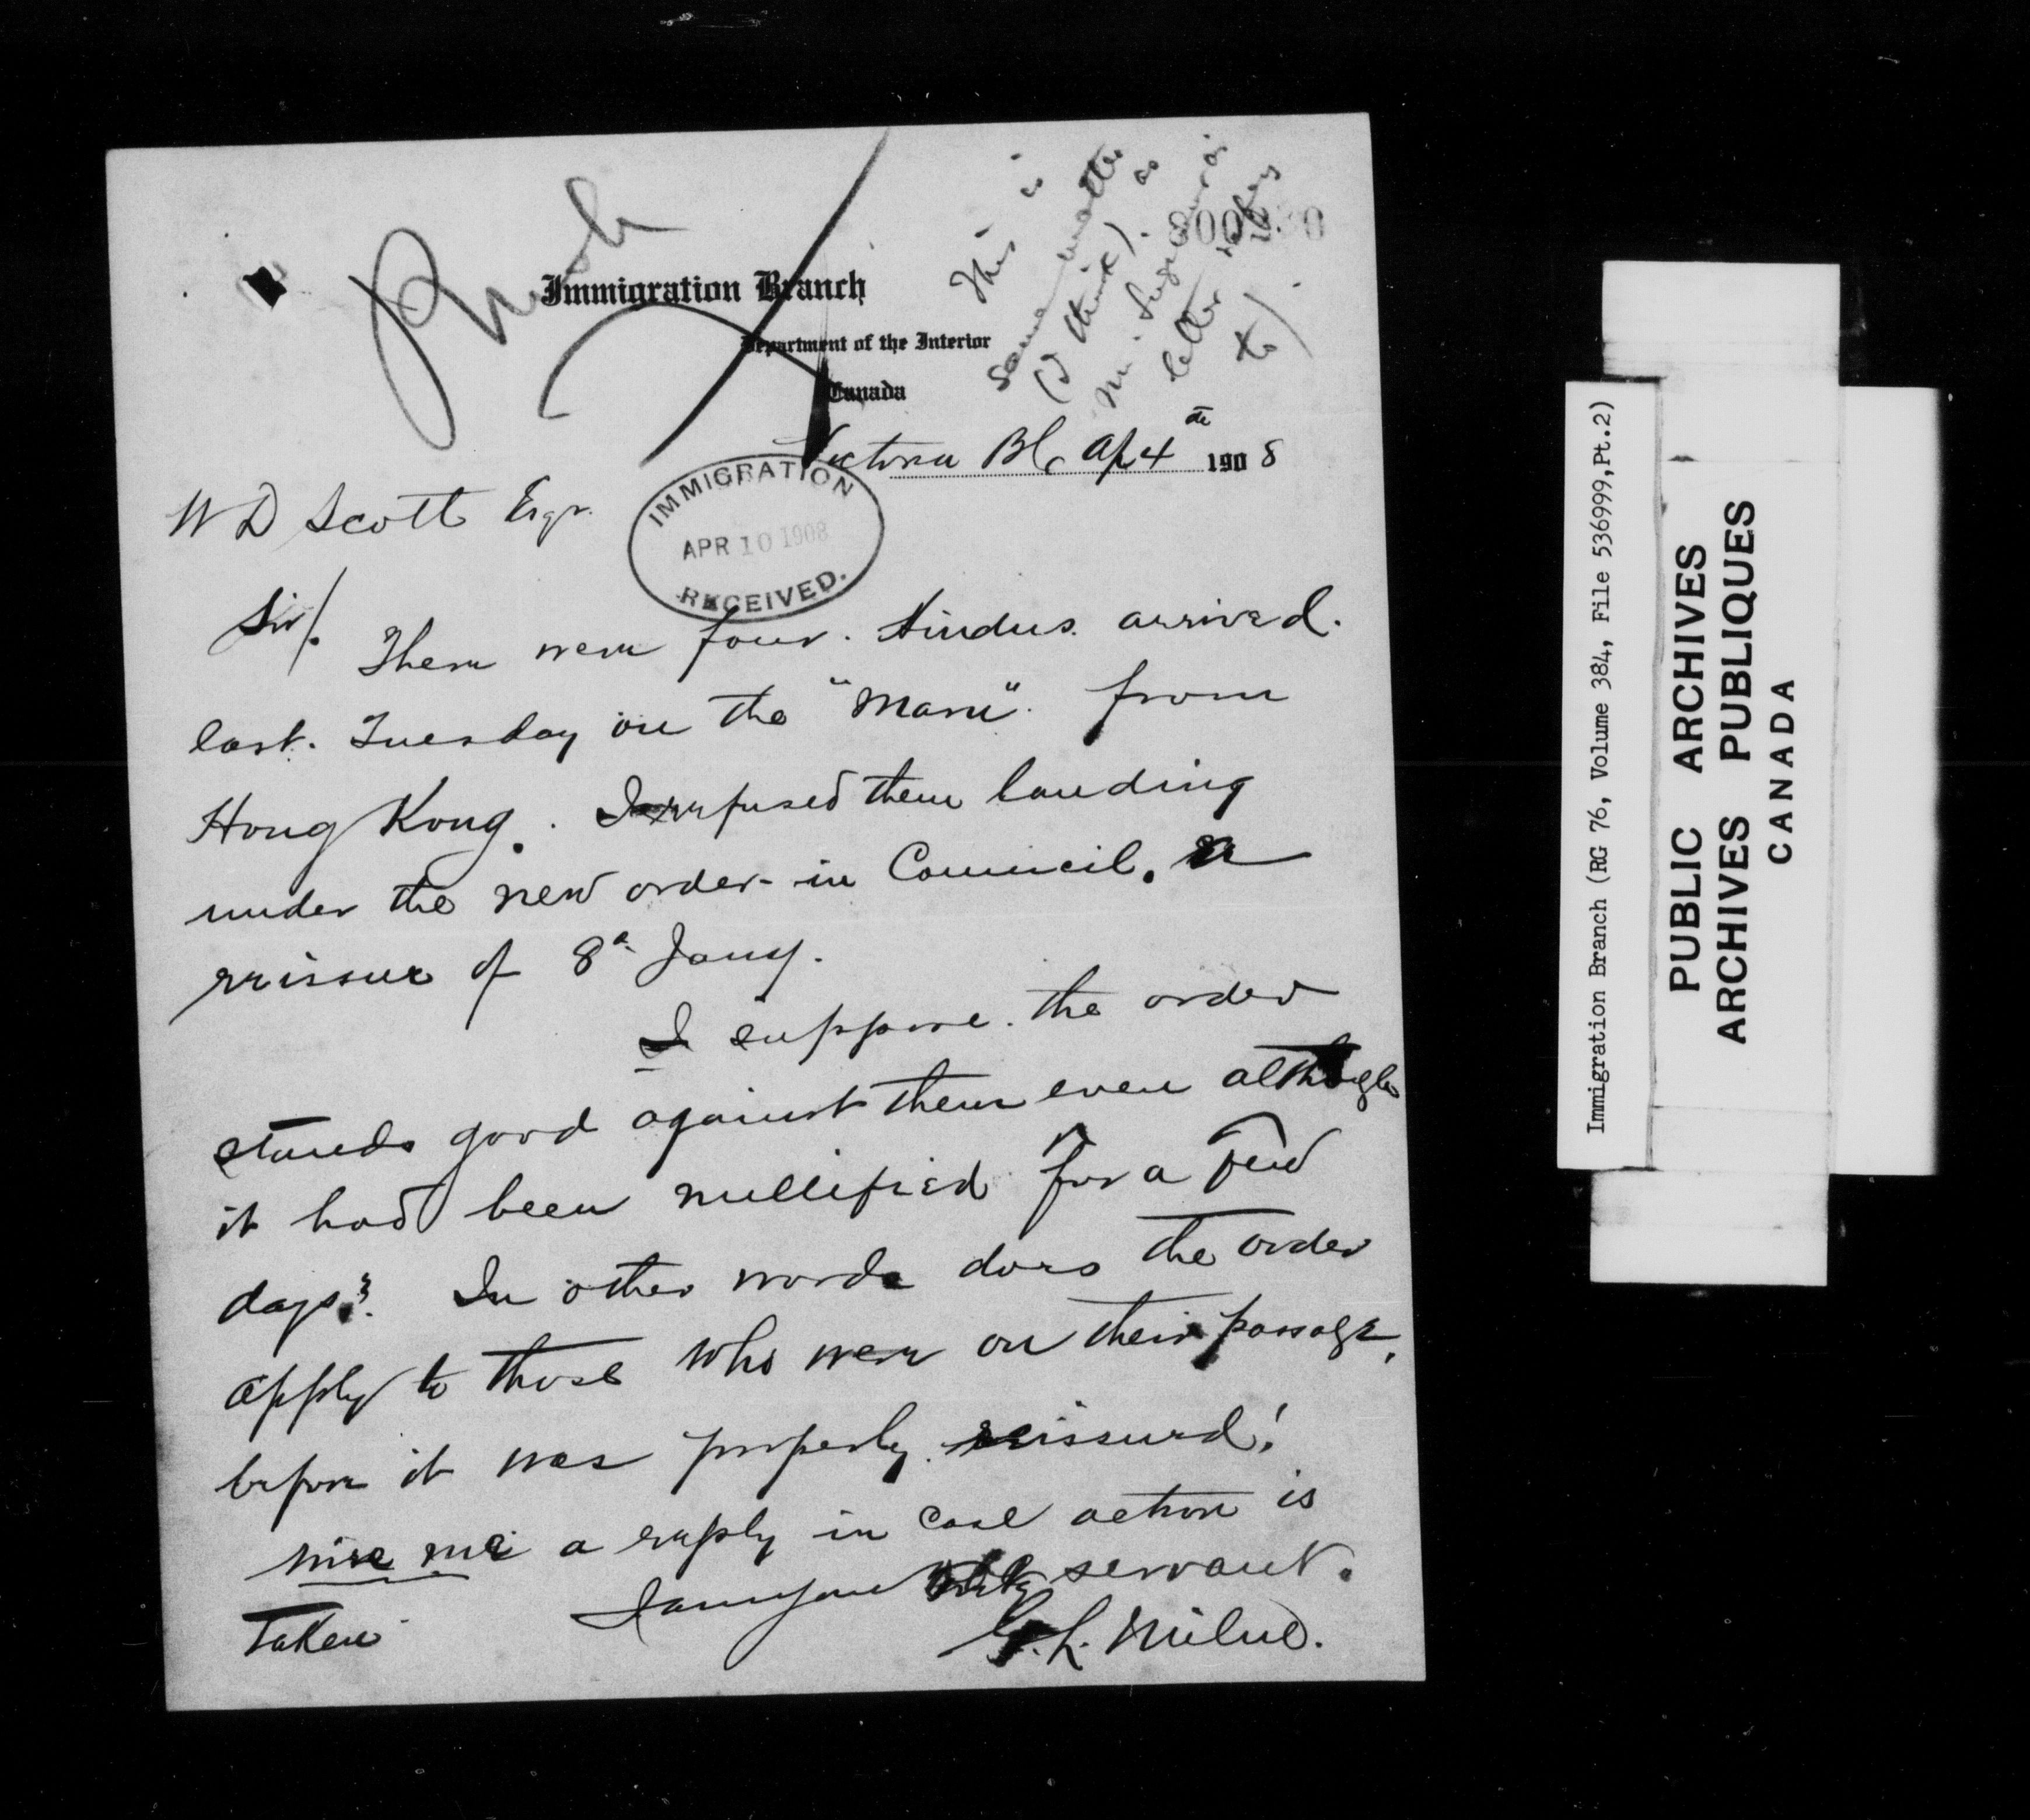 Rush
This is
same matter
(I think) as
Mr.
letter refers
to).
Immigration Branch
Department of the Interior
Canada
Victoria BC Ap 4th 1908
W D Scott Esqr.
IMMIGRATION
APR 10 1908
RECEIVED.
Sir/. There were four. Hindus. arrived.
last. Tuesday on the "Maru". from
Hong Kong. I refused them landing
under the new order-in Council. a
reissue of 8th Jany.
I suppose. the order
stands good against them even although
it had been nullified for a few
days?. In other words does the order
apply to those who were on their passage,
before it was properly. reissued!
wire me a reply in case action is
Taken
I am your servant.
G. L. Milne.
Immigration Branch (RG 76, Volume 384, File 536999,Pt.2)
PUBLIC ARCHIVES
ARCHIVES PUBLIQUES
CANADA